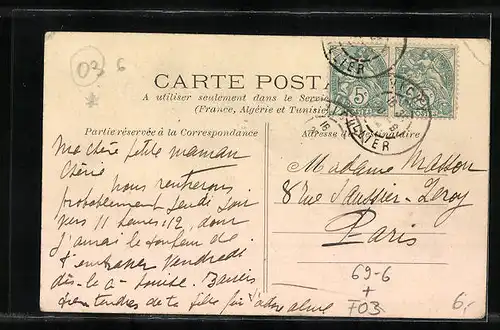 03 6
*
CARTE POSTA
A utiliser seulement dans le Servi
(France, Algérie et Tunisie
Partie réservée à la Correspondance
Adresse du
Ma chère petite maman
Chérie
Nous rentrerons
probablement jeudi soir
vers 11 heures 1/2, donc
j'aurai le bonheur de
t'embrasser vendredi
dès le
Baisers
tendres de ta fille qui t'adore
Madame Masson
8 Rue Saussier-Leroy
Paris
69-6
+
F03
6,-
5c